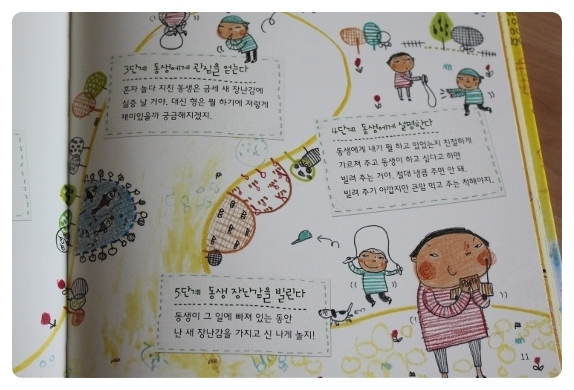 3단계 동생에게 관심을 얻는다
혼자 놀다 지친 동생은 금세 새 장난감에
싫증 날 거야. 대신 형은 뭘 하기에 저렇게
재미있을까 궁금해지겠지.
4단계 동생에게 설명한다
동생에게 내가 뭘 하고 있었는지 친절하게
가르쳐 주고 동생이 하고 싶다고 하면
빌려 주는 거야. 절대 냉큼 주면 안 돼.
빌려 주기 아깝지만 큰맘 먹고 주는 척해야지.
5단계 동생 장난감을 빌린다
동생이 그 일에 빠져 있는 동안
난 새 장난감을 가지고 신 나게 놀지!
11